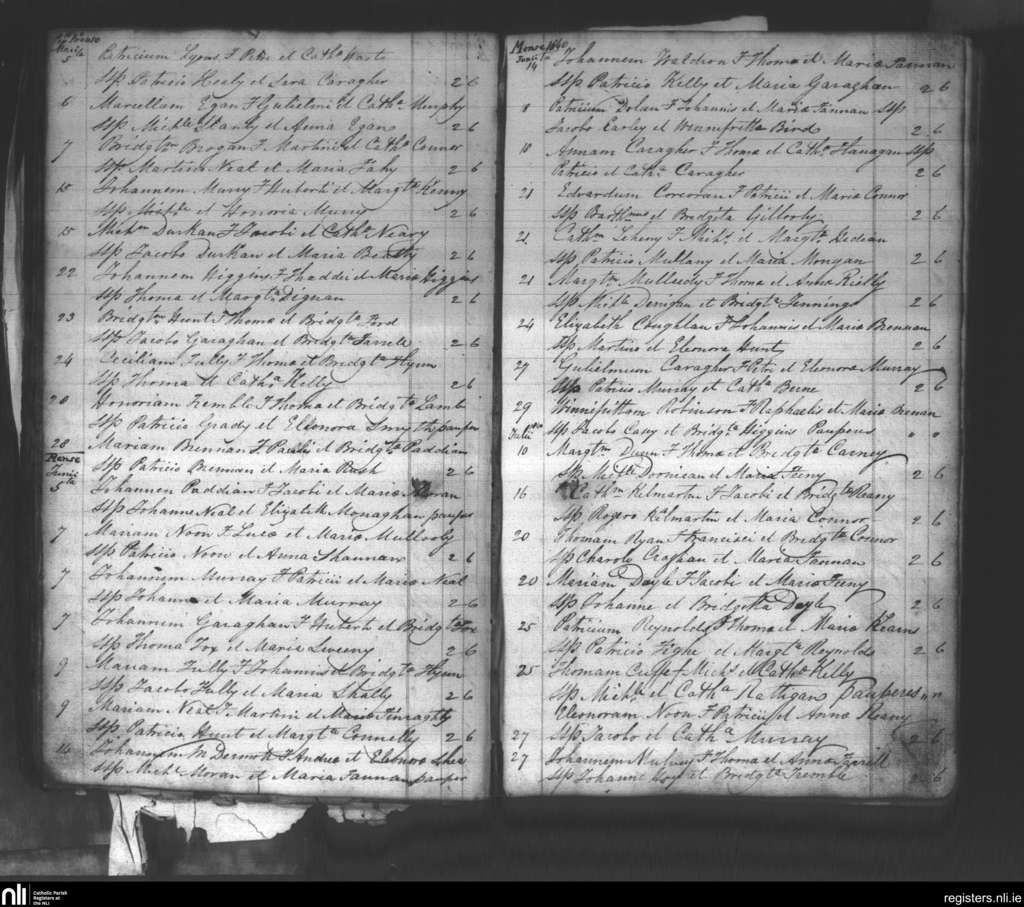 Maii
5 Patricium Lyons F Petri et Catha
Ssp Patricio Heely et Sera Caragher 2 6
6 Marcellam Egan F Gulielmi et Catha Murphy
Ssp Michle Stanly et Anna Egan 2 6
7 Bridgtm Brogan F Martini et Catha Connor
Ssp Martino Neal et Maria Fahy 2 6
Johannem Murry F Huberti et Margta Kenny
Ssp et Honoria Murry 2 6
15 Michm Durkan F Jacobi et Catha Neary
Ssp Jacobo Durkan et Maria 2 6
22 Johannem Higgins F Thaddei et Maria Higgins
Ssp Thoma et Margta Dignan 2 6
23 Bridgtm Hunt F Thoma et Bridgta Ford
Ssp Jacobo Garaghan et Bridgta 2 6
24 Ceciliam Fully F Thoma et Bridgta Flynn
Ssp Thoma et Catha Kelly 2 6
Honoriam Kemble F Thoma et Bridgta Lamb
Ssp Patricio Grady et Elleonora Smyth pauper
28 Mariam Brennan F Pauli et Bridgta Paddian
Ssp Patricio Brennan et Maria Rush 2 6
Mense
Junii
5 ta Johannem Paddian F Jacobi et Maria Moran
Ssp Johanne Neal et Elizabeth Monaghan pauper
7 Mariam Noon F Luca et Maria Mullooly
Ssp Patricio Noon et Anna Shannan 2 6
7 Johannem Murray F Patricii et Maria Neal
Ssp Johanne et Maria Murray 2 6
7 Johannem Garaghan F Huberti et Bridgta Fox
Ssp Thoma Fox et Maria Sweeny 2 6
9 Mariam Fully F Johannis et Bridgta Flynn
Ssp Jacobo Fully et Maria Shally 2 6
9 Mariam Neal F Martini et Maria
Ssp Patricio Hunt et Margta Connelly 2 6
14 Johannem McDermott F Andrea et Elenora Shea
Ssp Michle Moran et Maria Fannan pauper
Mense 1840
Junii
14 Johannem Waldron F Thoma et Maria Fannan
Ssp Patricio Kelly et Maria Garaghan 2 6
Patricium Dolan F Johannis et Maria Fannan Ssp
Jacobo Earley et Winnefritta Bird 2 6
Annam Caragher F Thoma et Catha Flanagan Ssp
Patricio et Catha Caragher 2 6
21 Edvardum Corcoran F Patricii et Maria Connor
Ssp et Bridgita Gillooly 2 6
21 Cathm F Michs et Margta Dedian
Ssp Patricio Mullany et Maria Mongan 2 6
21 Margtm Mulleedy F Thoma et Anna Rielly
Ssp Michle Denighn et Bridgta Jennings 2 6
24 Elizabeth Coughlan F Johannis et Maria Brennan
Ssp Martino et Eleonora Hunt 2 6
27 Gulielmum Caragher F Petri et Eleonora Murray
Ssp Patricio Murray et Catha Birne 2 6
29 Winnifrittam Robinson F Raphaelis et Maria
Ssp Jacobo Casy et Bridgta Higgins Pauperes " "
Julii
10 Margtm Dunn F Thoma et Bridgta Carney
Ssp Michle Dornican et Maria Feeny 2 6
16 Cathm Kilmartin F Jacobi et Bridgta Reany
Ssp Rogero Kilmartin et Maria Connor 2 6
20 Thomam Ryan F Francisci et Bridgta Connor
Ssp Charolo Croghan et Maria Fannan 2 6
20 Mariam Doyle F Jacobi et Maria Feeny
Ssp Johanne et Bridgetta Doyle 2 6
25 Patricium Reynolds F Thoma et Maria Kearns
Ssp Patricio Tighe et Margta Reynolds 2 6
25 Thomam F Michs et Catha Kelly
Ssp Michle et Catha Rattigan Pauperes " "
Eleonoram Noon F Patricii et Anna Reany
27 Ssp Jacobo et Catha Murray 2 6
27 Johannem F Thoma et Anna Farrell
Ssp Johanne et Bridgta Tremble 2 6
nli Catholic Parish
Registers at
the NLI
registers.nli.ie